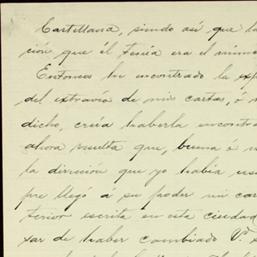 Castellana, siendo así que la
ción que él tenía era el mismo
Entonces he encontrado la exp
del extravío de mis cartas, ó m
dicho, creía haberla encontra
ahora resulta que, buena ó m
la dirección que yo había us
pre llegó á su poder mi car
terior escrita en esta ciudad
xar de haber cambiado V.